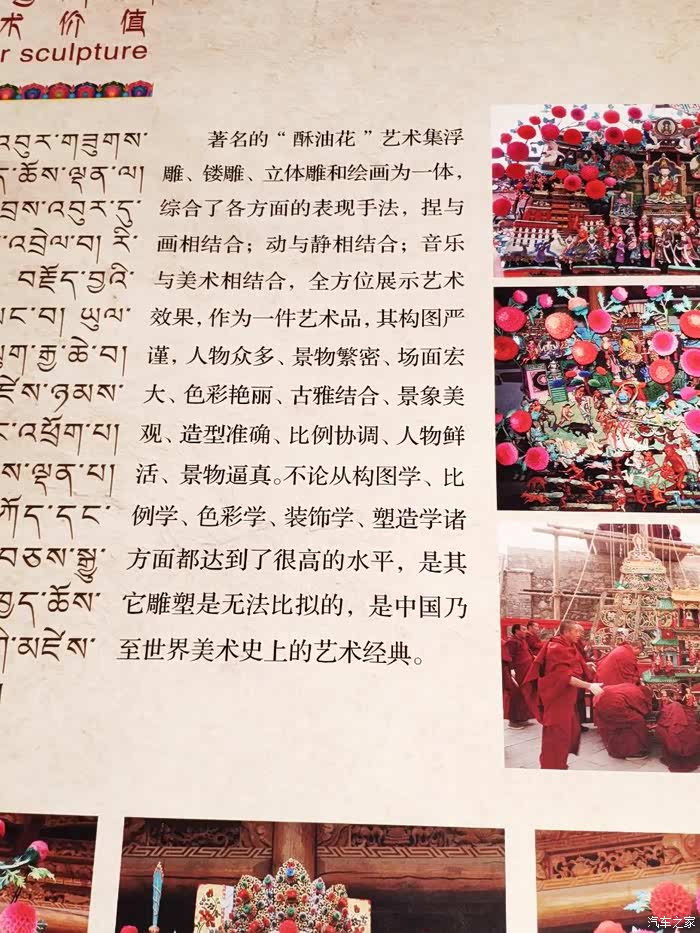 术价值
r sculpture
འབུར་གཟུགས་
ད་ཆོས་ལྡན་ལ།
བྲས་འབུར་དུ་
འབྲེལ་བ། རི་
བརྗོད་བྱའི་
ཡང་བ། ཡུལ་
ཕུག་རྒྱ་ཆེ་བ།
ཛེས་ཉམས་
ང་འཕྲོག་པ།
ས་ལྡན་པ།
ཀོད་དང་
བཅས་སྒྱུ
ཁྱད་ཆོས་
གི་མཛེས་
著名的“酥油花”艺术集浮
雕、镂雕、立体雕和绘画为一体,
综合了各方面的表现手法，捏与
画相结合；动与静相结合；音乐
与美术相结合，全方位展示艺术
效果，作为一件艺术品，其构图严
谨，人物众多、景物繁密、场面宏
大、色彩艳丽、古雅结合、景象美
观、造型准确、比例协调、人物鲜
活、景物逼真。不论从构图学、比
例学、色彩学、装饰学、塑造学诸
方面都达到了很高的水平，是其
它雕塑是无法比拟的，是中国乃
至世界美术史上的艺术经典。
汽车之家